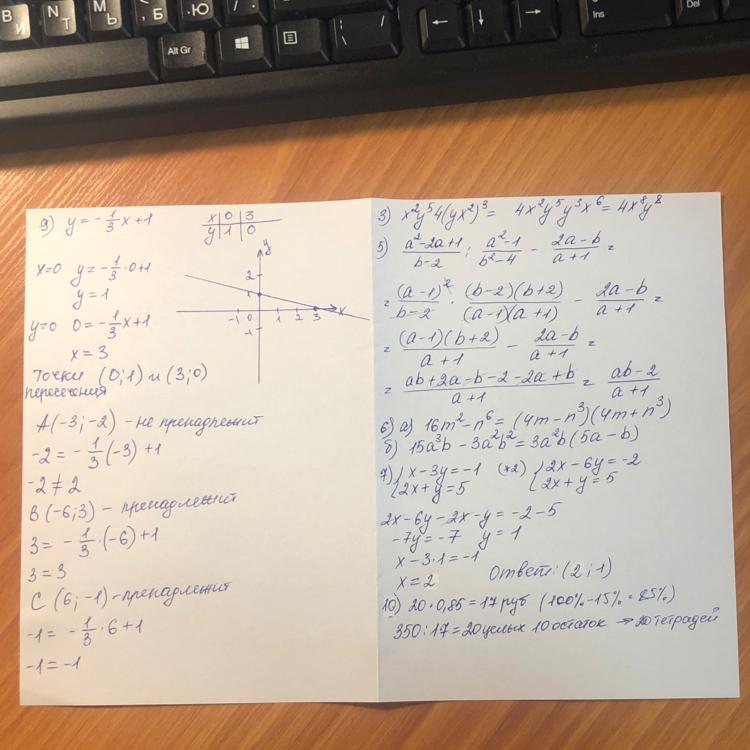 В И
N Т
М Ь
, Б
. Ю
Alt Gr
Ins
Del
9) y = -1/3 x + 1
x 0 3
y 1 0
x=0 y = -1/3 · 0+1
y = 1
y=0 0 = -1/3 x + 1
x = 3
Точки (0;1) и (3;0)
пересечения
y
2
1
-1 0 1 2 3 x
-1
A (-3; -2) - не пренадлежит
-2 = -1/3 (-3) + 1
-2 ≠ 2
B (-6; 3) - пренадлежит
3 = -1/3 · (-6) + 1
3 = 3
C (6; -1) - пренадлежит
-1 = -1/3 · 6 + 1
-1 = -1
3) x²y⁵4(yx²)³ = 4x²y⁵y³x⁶ = 4x⁸y⁸
5) (a²-2a+1)/(b-2) : (a²-1)/(b²-4) - (2a-b)/(a+1) =
= (a-1)²/(b-2) · (b-2)(b+2)/(a-1)(a+1) - (2a-b)/(a+1) =
= (a-1)(b+2)/(a+1) - (2a-b)/(a+1) =
= (ab+2a-b-2-2a+b)/(a+1) = (ab-2)/(a+1)
6) а) 16m²-n⁶ = (4m-n³)(4m+n³)
б) 15a³b - 3a²b² = 3a²b(5a-b)
7) { x-3y=-1 (×2) { 2x-6y=-2
{ 2x+y=5 { 2x+y=5
2x-6y-2x-y = -2-5
-7y = -7 y = 1
x-3·1=-1
x = 2 Ответ: (2; 1)
10) 20·0,85=17 руб (100%-15% = 85%)
350 : 17 = 20 целых 10 остаток → 20 тетрадей